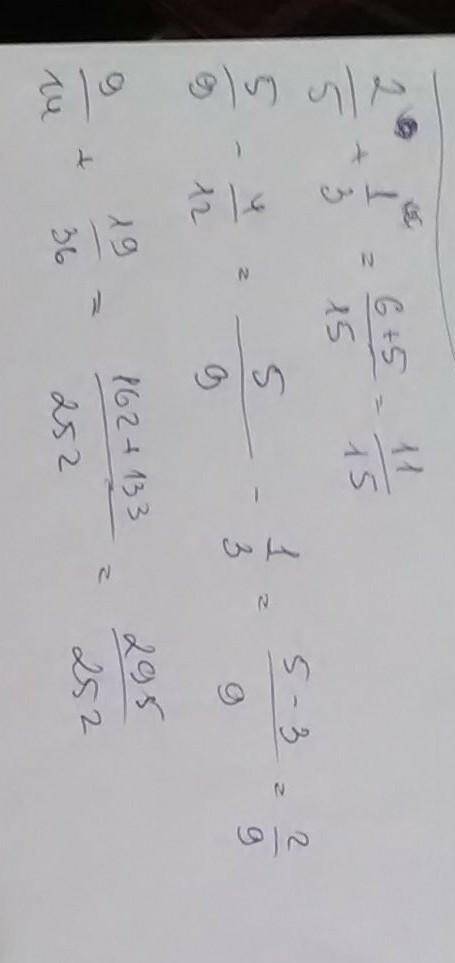 2/5 + 1/3 = 6+5/15 = 11/15
5/9 - 4/12 = 5/9 - 1/3 = 5-3/9 = 2/9
9/14 + 19/36 = 162+133/252 = 295/252